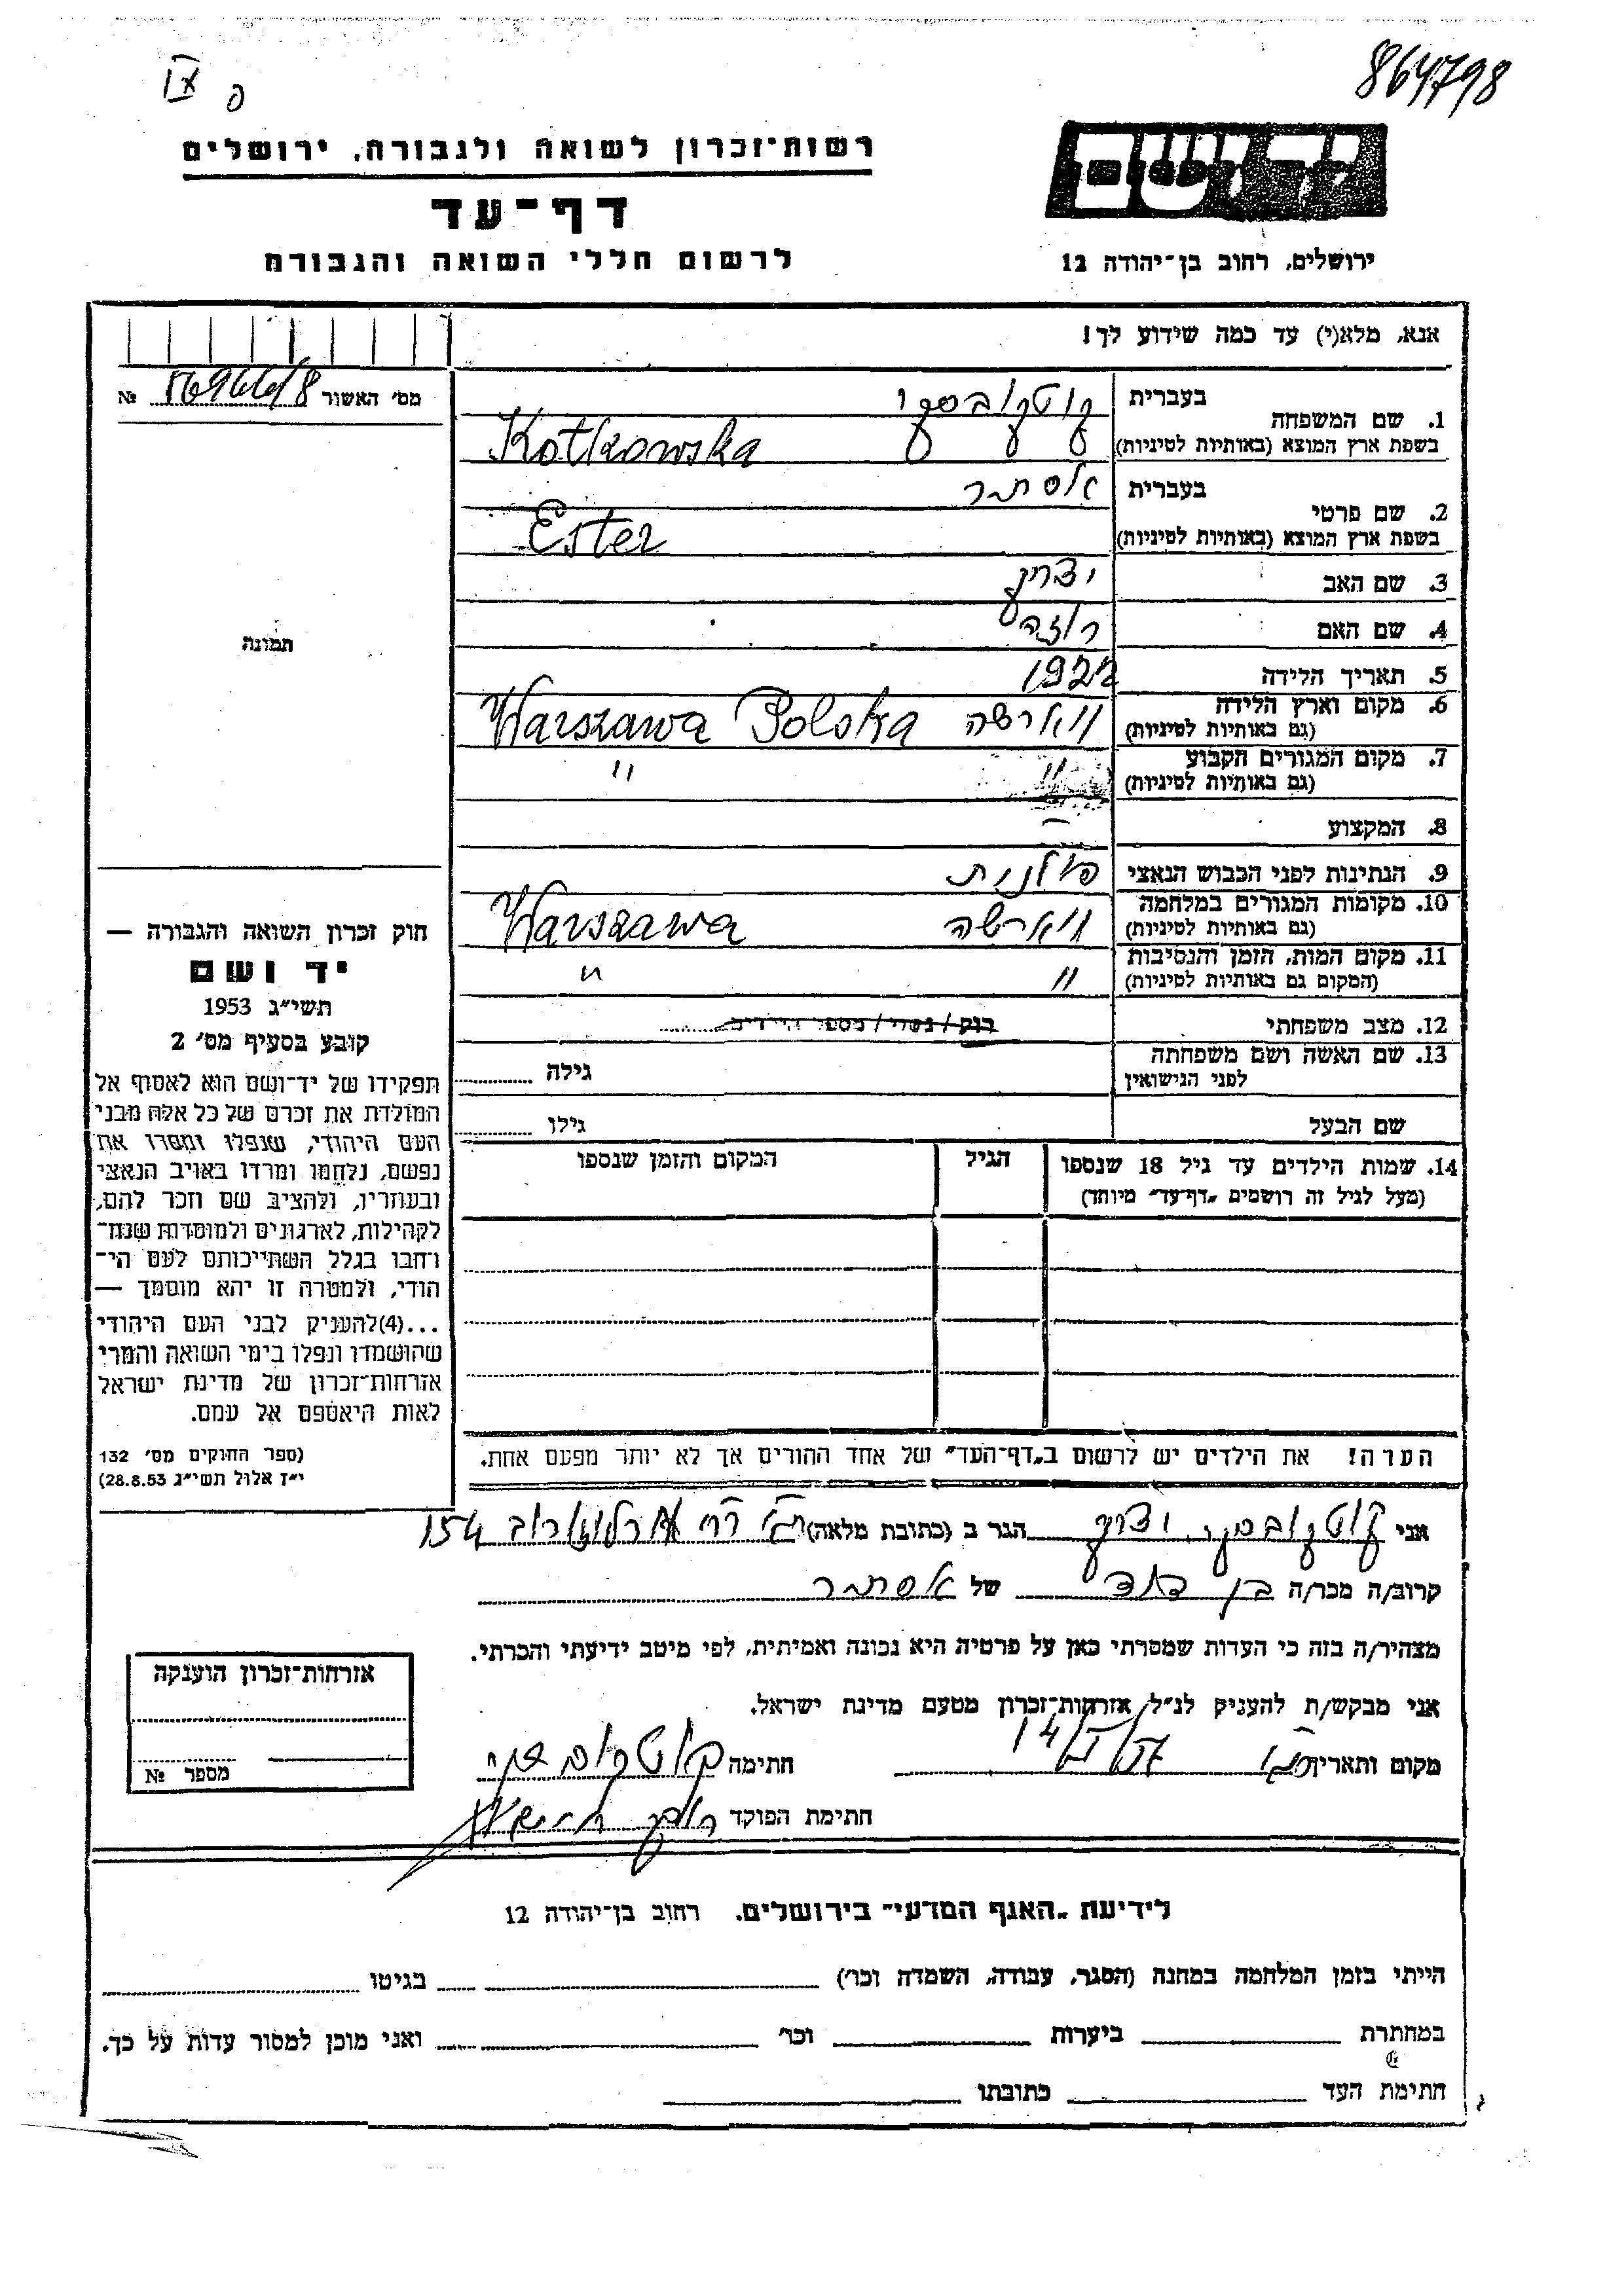 864798
IX פ
רשות־זכרון לשואה ולגבורה, ירושלים
יד ושם
דף־עד
לרשום חללי השואה והגבורה
ירושלים, רחוב בן־יהודה 12
אנא, מלא(י) עד כמה שידוע לך!
מס׳ האשור №
1. שם המשפחה
בעברית קוטקובסקי
בשפת ארץ המוצא (באותיות לטיניות) Kotkowska
2. שם פרטי
בעברית אסתר
בשפת ארץ המוצא (באותיות לטיניות) Ester
3. שם האב יצחק
4. שם האם רוזה
5. תאריך הלידה 1922
6. מקום וארץ הלידה ווארשה Warszawa Polska
(גם באותיות לטיניות)
7. מקום המגורים הקבוע " "
(גם באותיות לטיניות)
8. המקצוע —
9. הנתינות לפני הכבוש הנאצי פולנית
10. מקומות המגורים במלחמה ווארשה Warszawa
(גם באותיות לטיניות)
11. מקום המות, הזמן והנסיבות " "
(המקום גם באותיות לטיניות)
12. מצב משפחתי רוק / נשוי / מספר הילדים
13. שם האשה ושם משפחתה גילה
לפני הנישואין
שם הבעל גילו
14. שמות הילדים עד גיל 18 שנספו הגיל המקום והזמן שנספו
(מעל לגיל זה רושמים „דף־עד" מיוחד)
הערה! את הילדים יש לרשום ב„דף־העד" של אחד ההורים אך לא יותר מפעם אחת.
תמונה
חוק זכרון השואה והגבורה —
יד ושם
תשי״ג 1953
קובע בסעיף מס׳ 2
תפקידו של יד־ושם הוא לאסוף אל
המולדת את זכרם של כל אלה מבני
העם היהודי, שנפלו ומסרו את
נפשם, נלחמו ומרדו באויב הנאצי
ובעוזריו, ולהציב שם וזכר להם,
לקהילות, לארגונים ולמוסדות שנח־
רחבו בגלל השתייכותם לעם הי־
הודי, ולמטרה זו יהא מוסמך —
...(4)להעניק לבני העם היהודי
שהושמדו ונפלו בימי השואה והמרי
אזרחות־זכרון של מדינת ישראל
לאות היאספם אל עמם.
(ספר החוקים מס׳ 132
י״ז אלול תשי״ג 28.8.53)
אני קוטקובסקי יצחק הגר ב (כתובת מלאה) ת״א רח׳ ארלוזורוב 154
קרוב/ה מכר/ה בן דוד של אסתר
מצהיר/ה בזה כי העדות שמסרתי כאן על פרטיה היא נכונה ואמיתית, לפי מיטב ידיעתי והכרתי.
אני מבקש/ת להעניק לנ״ל אזרחות־זכרון מטעם מדינת ישראל.
מקום ותאריך ת״א 14/ חתימה קוטקובסקי
חתימת הפוקד
אזרחות־זכרון הוענקה
מספר №
לידיעת „האגף המדעי" בירושלים. רחוב בן־יהודה 12
הייתי בזמן המלחמה במחנה (הסגר, עבודה, השמדה וכו׳) בגיטו
במחתרת ביערות וכו׳ ואני מוכן למסור עדות על כך.
חתימת העד כתובתו